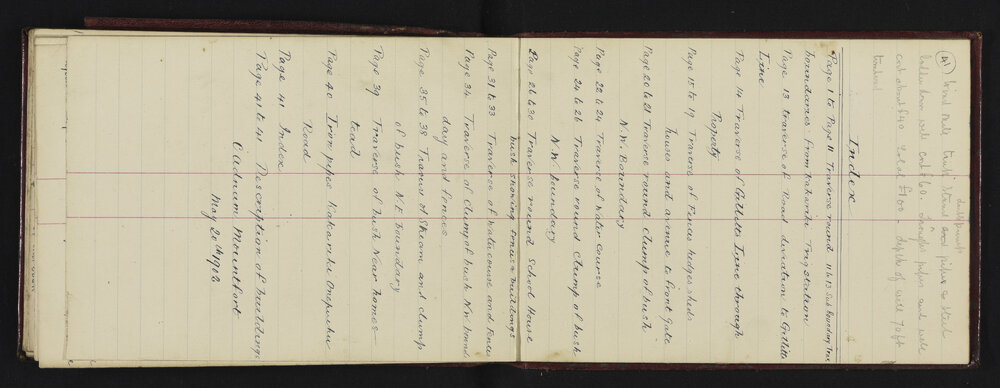 (41) Wind Mill
dustproof
cost about £40 Total £100 depth of well 70ft
Index
Page 1 to Page 11 Traverse round 11 & 13 Sub Boundary Line
boundaries from Kakariki Trig Station
Page 13 traverse of Road deviation to Gilletts
Line
Page 14 Traverse of Gilletts Line through
Property
Page 15 to 19 Traverse of Fences hedges sheds
houses and avenue to front Gate
Page 20 to 21 Traverse round clump of bush
N.W. Boundary
Page 22 to 24 Traverse of Water Course
Page 24 to 26 Traverse round Clump of bush
N W Boundary
Page 26 to 30 Traverse round School House
bush showing buildings
Page 31 to 33 Traverse of Watercourse and Fence
Page 34 Traverse of Clump of bush N.W. bound
day and fences
Page 35 to 38 Traverse of Stream and clump
of bush N.E. boundary
Page 39 Traverse of bush Near homes
tead
Page 40 Iron pipes Kakariki Onepuhu
Road
Page 41 Index
Page 41 to 41 Description of buildings
Cadnum Mountfort
May 20th 1902